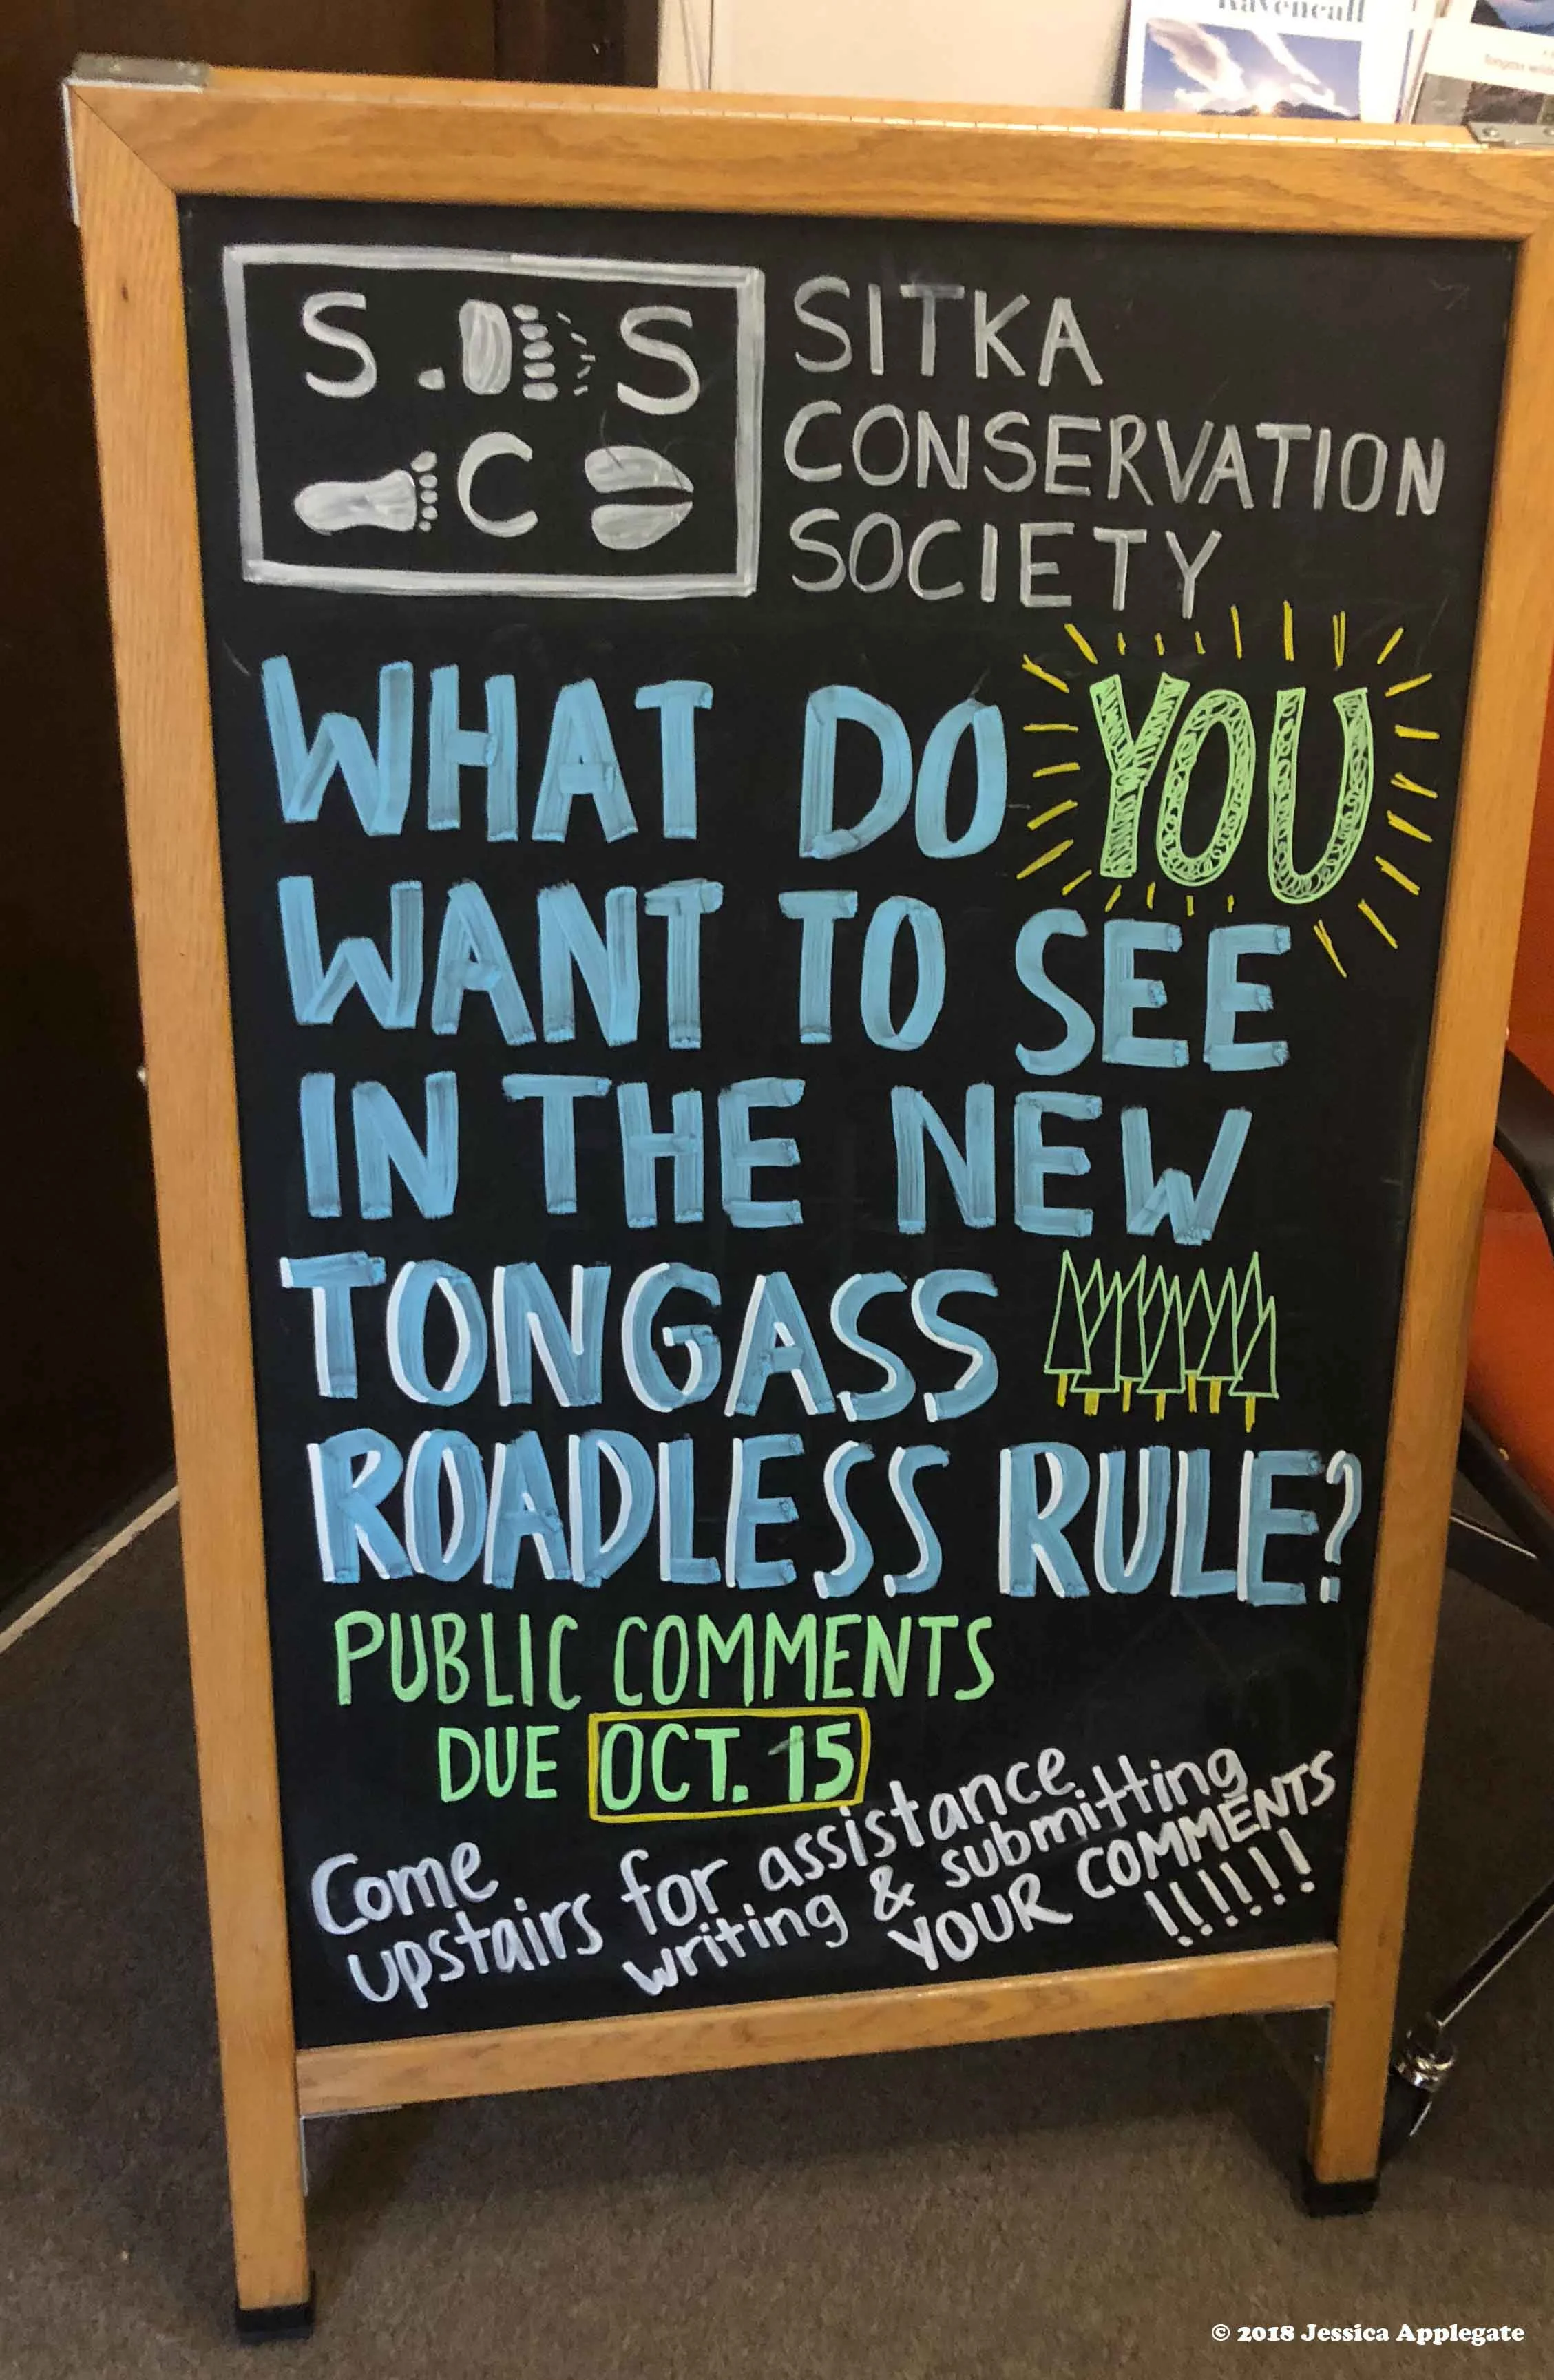 Ravencall
S S
C
SITKA
CONSERVATION
SOCIETY
WHAT DO YOU
WANT TO SEE
IN THE NEW
TONGASS
ROADLESS RULE?
PUBLIC COMMENTS
DUE OCT. 15
Come
upstairs for assistance
writing & submitting
YOUR COMMENTS
!!!!!!
© 2018 Jessica Applegate